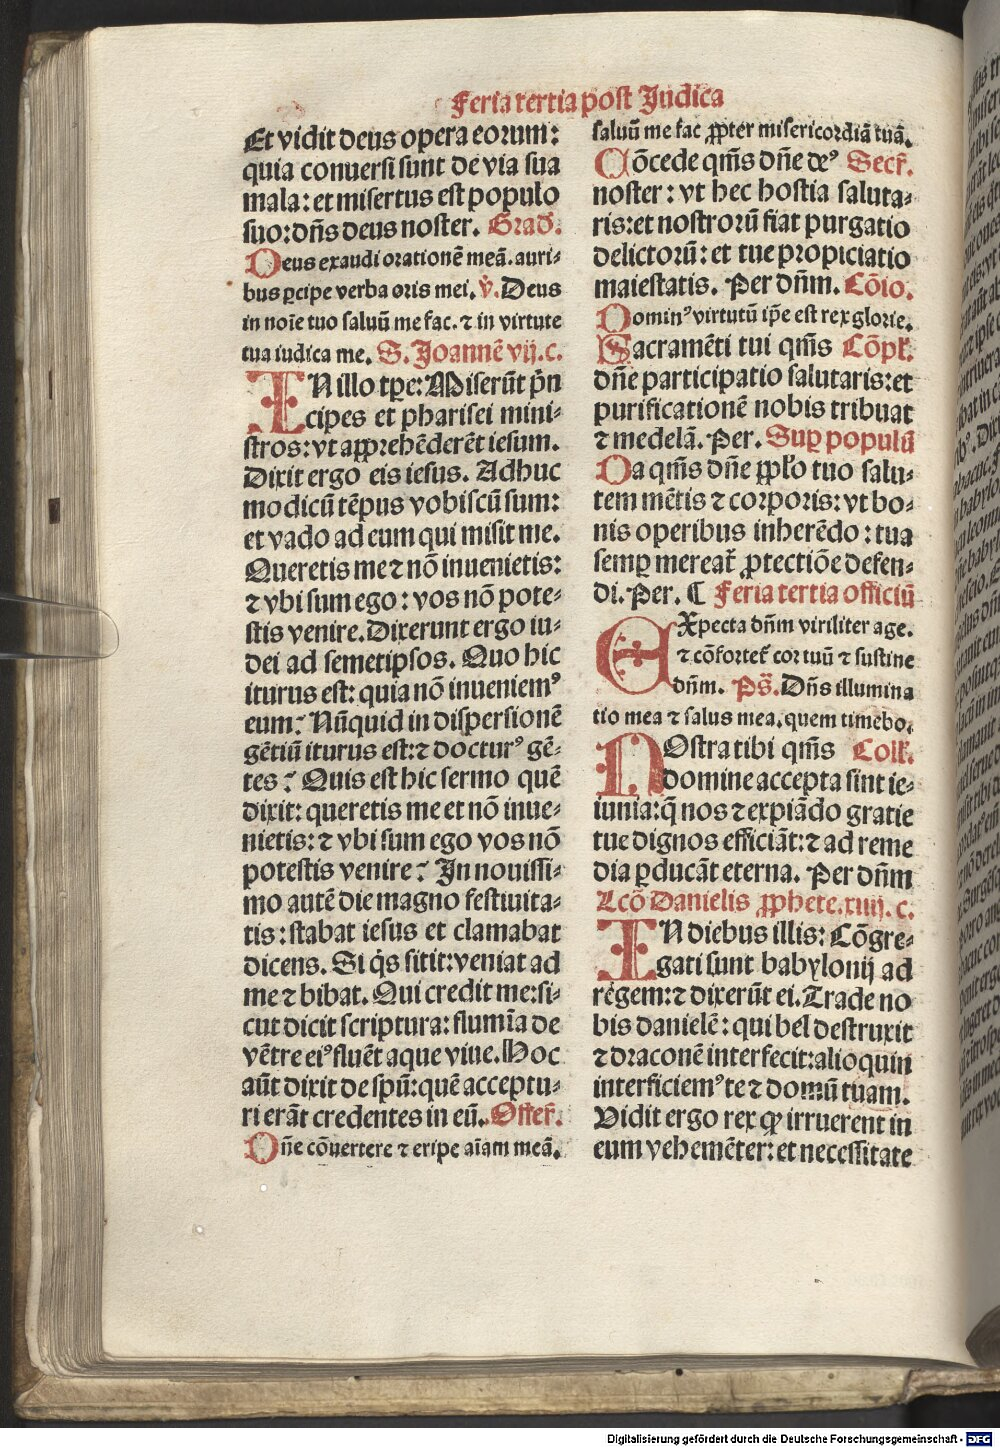 Feria tertia post Judica
Et vidit deus opera eorum:
quia conuersi sunt de via sua
mala: et misertus est populo
suo: dñs deus noster. Grad̃.
Deus exaudi orationē meā. auri⸗
bus ꝑcipe verba oris mei. ℣. Deus
in noīe tuo saluū me fac. ⁊ in virtute
tua iudica me. S. Joannē vij. c.
IN illo tꝑe: Miserūt pͥn
cipes et pharisei mini⸗
stros: vt apprehēderēt iesum.
Dixit ergo eis iesus. Adhuc
modicū tēpus vobiscū sum:
et vado ad eum qui misit me.
Queretis me ⁊ nō inuenietis:
⁊ vbi sum ego: vos nō pote⸗
stis venire. Dixerunt ergo iu⸗
dei ad semetipsos. Quo hic
iturus est: quia nō inueniemꝰ
eum? Nūquid in dispersionē
gētiū iturus est: ⁊ docturꝰ gē⸗
tes? Quis est hic sermo quē
dixit: queretis me et nō inue⸗
nietis: ⁊ vbi sum ego vos nō
potestis venire? In nouissi⸗
mo autē die magno festiuita⸗
tis: stabat iesus et clamabat
dicens. Si qͥs sitit: veniat ad
me ⁊ bibat. Qui credit me: si⸗
cut dicit scriptura: flumīa de
vētre eiꝰ fluēt aque viue. Hoc
aūt dixit de spū: quē acceptu⸗
ri erāt credentes in eū. Offer̃.
Dñe cōuertere ⁊ eripe aīam meā.
saluū me fac ꝓpter misericordiā tuā.
Cōcede qm̄s dñe deꝰ Secr̃.
noster: vt hec hostia saluta⸗
ris: et nostrorū fiat purgatio
delictorū: et tue propiciatio
maiestatis. Per dñm. Cōio.
Dominꝰ virtutū ip̄e est rex glorie.
Sacramēti tui qm̄s Cōpl̃.
dñe participatio salutaris: et
purificationē nobis tribuat
⁊ medelā. Per. Suꝑ populū
Da qm̄s dñe ppl̄o tuo salu⸗
tem mētis ⁊ corporis: vt bo⸗
nis operibus inherēdo: tua
semꝑ mereat̃ ꝓtectiōe defen⸗
di. Per. ¶ Feria tertia officiū
EXpecta dñm viriliter age.
⁊ cōfortet̃ cor tuū ⁊ sustine
dñm. Ps̃. Dñs illumina
tio mea ⁊ salus mea. quem timebo.
NOstra tibi qm̄s Coll̃.
domine accepta sint ie⸗
iunia: q̄ nos ⁊ expiādo gratie
tue dignos efficiāt: ⁊ ad reme
dia ꝑducāt eterna. Per dñm
Lcō Danielis ꝓphete. xiiij. c.
IN diebus illis: Cōgre⸗
gati sunt babylonij ad
regem: ⁊ dixerūt ei. Trade no
bis danielē: qui bel destruxit
⁊ draconē interfecit: alioquin
interficiemꝰ te ⁊ domū tuam.
Vidit ergo rex ꝙ irruerent in
eum vehemēter: et necessitate
Digitalisierung gefördert durch die Deutsche Forschungsgemeinschaft - DFG